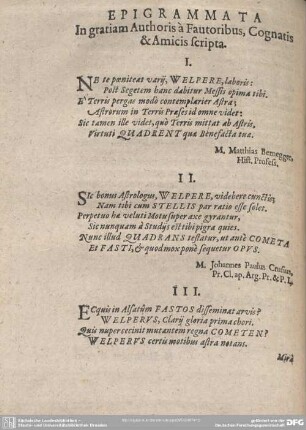 EPIGRAMMATA
In gratiam Authoris à Fautoribus, Cognatis
& Amicis scripta.
I.
NE te pœniteat varij, WELPERE, laboris:
Post Segetem hanc dabitur Messis opima tibi.
E Terris pergas modò contemplarier Astra;
Astrorum in Terris Præses id omne videt:
Sic tamen ille videt, quò Terris mittat ab Astris,
Virtuti QUADRENT quæ Benefacta tuæ.
M. Matthias Bernegger,
Hist. Profess.
II.
SIc bonus Astrologus, WELPERE, videbere cunctis;
Nam tibi cum STELLIS par ratio esse solet.
Perpetuo hæ veluti Motu super axe gyrantur,
Sic nunquam à Studijs est tibi pigra quies.
Nunc illud QUADRANS testatur, ut antè COMETA
Et FASTI, & quod mox ponè sequetur OPUS.
M. Johannes Paulus Crusius,
Pr. Cl. ap. Arg. Pr. & P. L.
III.
ECquis in Alsatûm FASTOS disseminat arvis?
WELPERVS, Clarij gloria prima chori.
Quis nuper cecinit mutantem regna COMETEN?
WELPERVS certis motibus astra notans.